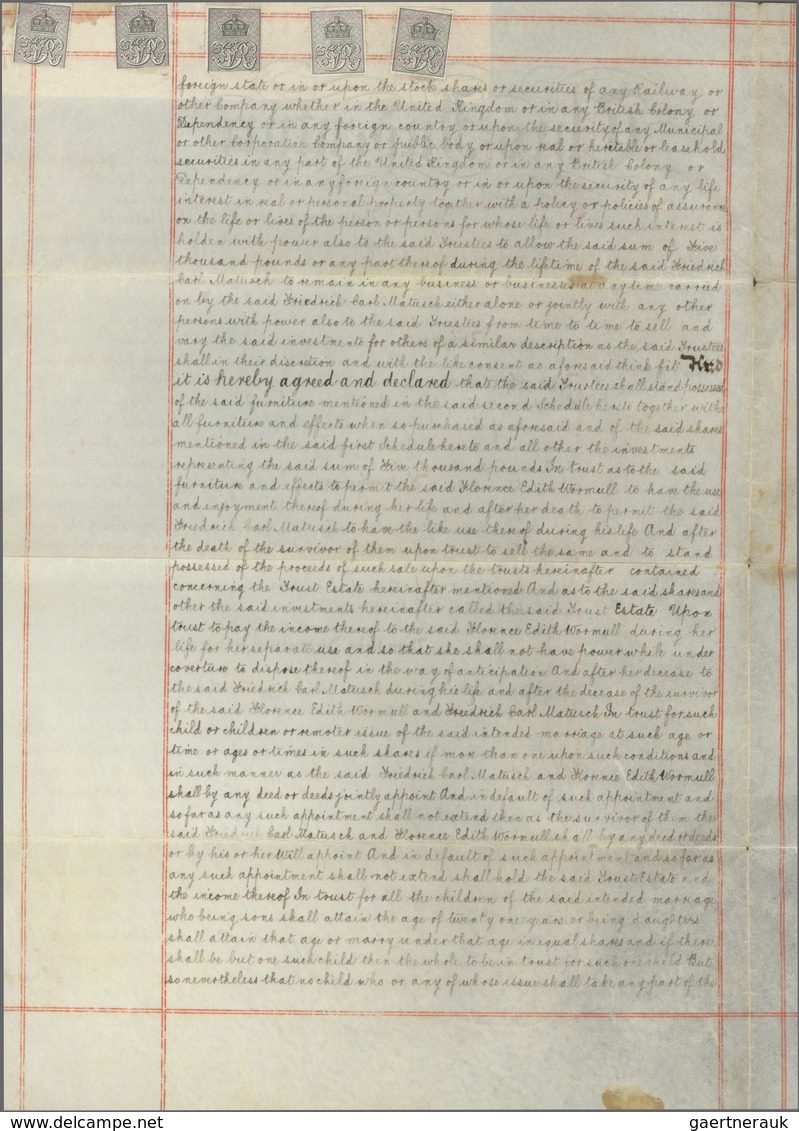 foreign state or in or upon the stock shares or securities of any Railway or
other Company whether in the United Kingdom or in any British Colony or
Dependency or in any foreign country or upon the security of any Municipal
or other Corporation Company or public body or upon real or heretable or leasehold
securities in any part of the United Kingdom or in any British Colony or
Dependency or in any foreign country or in or upon the security of any life
interest in real or personal property together with a policy or policies of assurance
on the life or lives of the person or persons for whose life or lives such interest is
holden with power also to the said Trustees to allow the said sum of Five
thousand pounds or any part thereof during the lifetime of the said Friedrich
Carl Matusch to remain in any business or businesses at any time carried
on by the said Friedrich Carl Matusch either alone or jointly with any other
persons with power also to the said Trustees from time to time to sell and
vary the said investments for others of a similar description as the said Trustees
shall in their discretion and with the like consent as aforesaid think fit And
it is hereby agreed and declared that the said Trustees shall stand possessed
of the said furniture mentioned in the said second Schedule hereto together with
all furniture and effects when so purchased as aforesaid and of the said shares
mentioned in the said first Schedule hereto and all other the investments
representing the said sum of Five thousand pounds In trust as to the said
furniture and effects to permit the said Florence Edith Wormull to have the use
and enjoyment thereof during her life and after her death to permit the said
Friedrich Carl Matusch to have the like use thereof during his life And after
the death of the survivor of them upon trust to sell the same and to stand
possessed of the proceeds of such sale upon the trusts hereinafter contained
concerning the Trust Estate hereinafter mentioned And as to the said shares and
other the said investments hereinafter called the said Trust Estate Upon
trust to pay the income thereof to the said Florence Edith Wormull during her
life for her separate use and so that she shall not have power while under
coverture to dispose thereof in the way of anticipation And after her decease to
the said Friedrich Carl Matusch during his life and after the decease of the survivor
of the said Florence Edith Wormull and Friedrich Carl Matusch In trust for such
child or children or remoter issue of the said intended marriage at such age or
time or ages or times in such shares if more than one upon such conditions and
in such manner as the said Friedrich Carl Matusch and Florence Edith Wormull
shall by any deed or deeds jointly appoint And in default of such appointment and
so far as any such appointment shall not extend then as the survivor of them the
said Friedrich Carl Matusch and Florence Edith Wormull shall by any deed or deeds
or by his or her Will appoint And in default of such appointment and so far as
any such appointment shall not extend shall hold the said Trust Estate and
the income thereof In trust for all the children of the said intended marriage
who being sons shall attain the age of twenty one years or being daughters
shall attain that age or marry under that age in equal shares and if there
shall be but one such child then the whole to be in trust for such one child But
so nevertheless that no child who or any of whose issue shall take any part of the
gaertnerauk